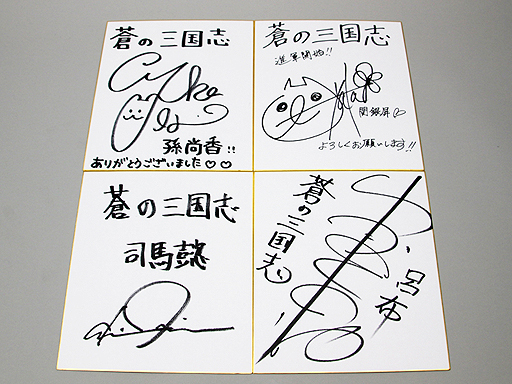 蒼の三国志
孫尚香!!
ありがとうございました♡♡
蒼の三国志
進軍開始!!
関銀屏
よろしくお願いします!!
蒼の三国志
司馬懿
蒼の三国志
呂布